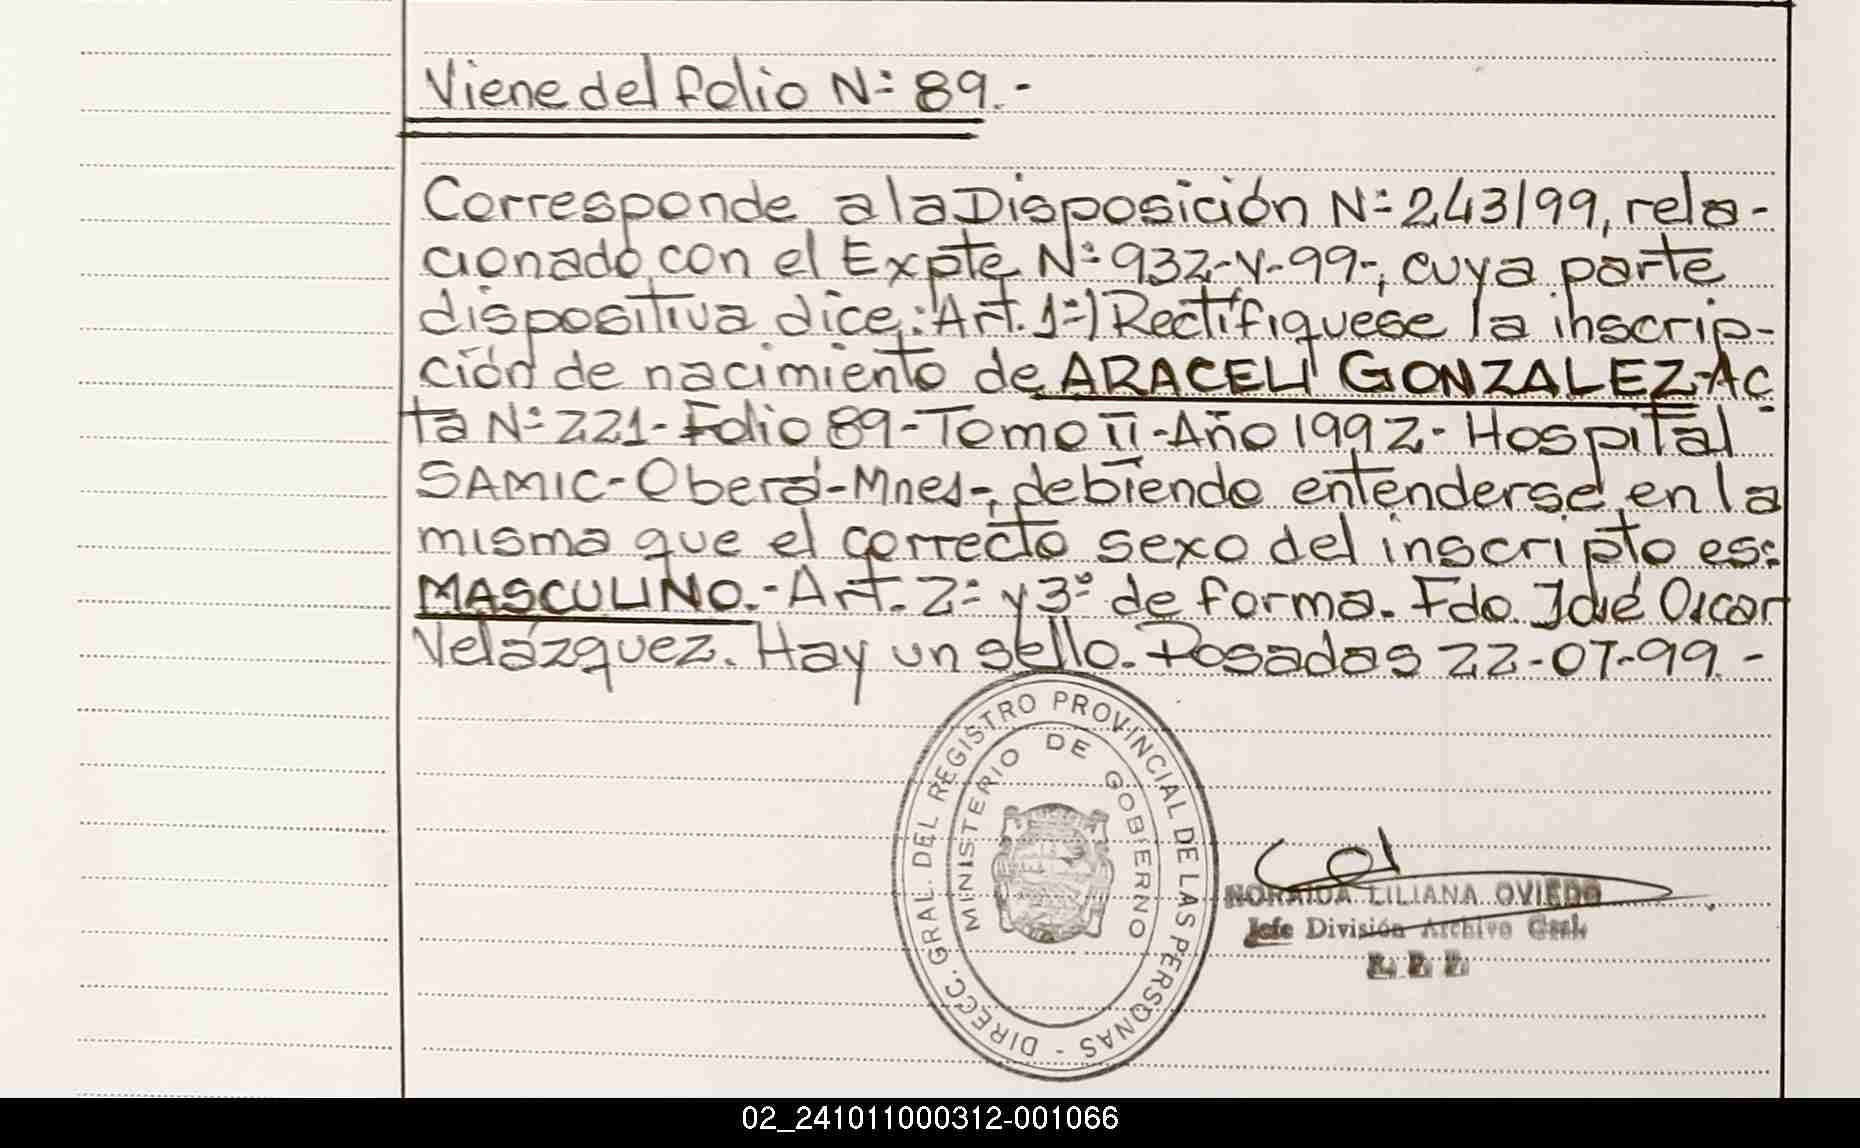 Viene del folio Nº 89.-
Corresponde a la Disposición Nº 243/99, rela-
cionado con el Expte Nº 932-V-99-, cuya parte
dispositiva dice: "Art. 1º) Rectifíquese la inscrip-
ción de nacimiento de ARACELI GONZALEZ-Ac
ta Nº 221-Folio 89-Tomo II-Año 1992-Hospital
SAMIC-Oberá-Mnes-, debiendo entenderse en la
misma que el correcto sexo del inscripto es:
MASCULINO.-Art. 2º y 3º de forma. Fdo. José Oscar
Velázquez. Hay un sello. Posadas 22-07-99.-
DIRECC. GRAL. DEL REGISTRO PROVINCIAL DE LAS PERSONAS -
MINISTERIO DE GOBIERNO
NORAIDA LILIANA OVIEDO
Jefe División Archivo Gral.
R. P. P.
02_241011000312-001066